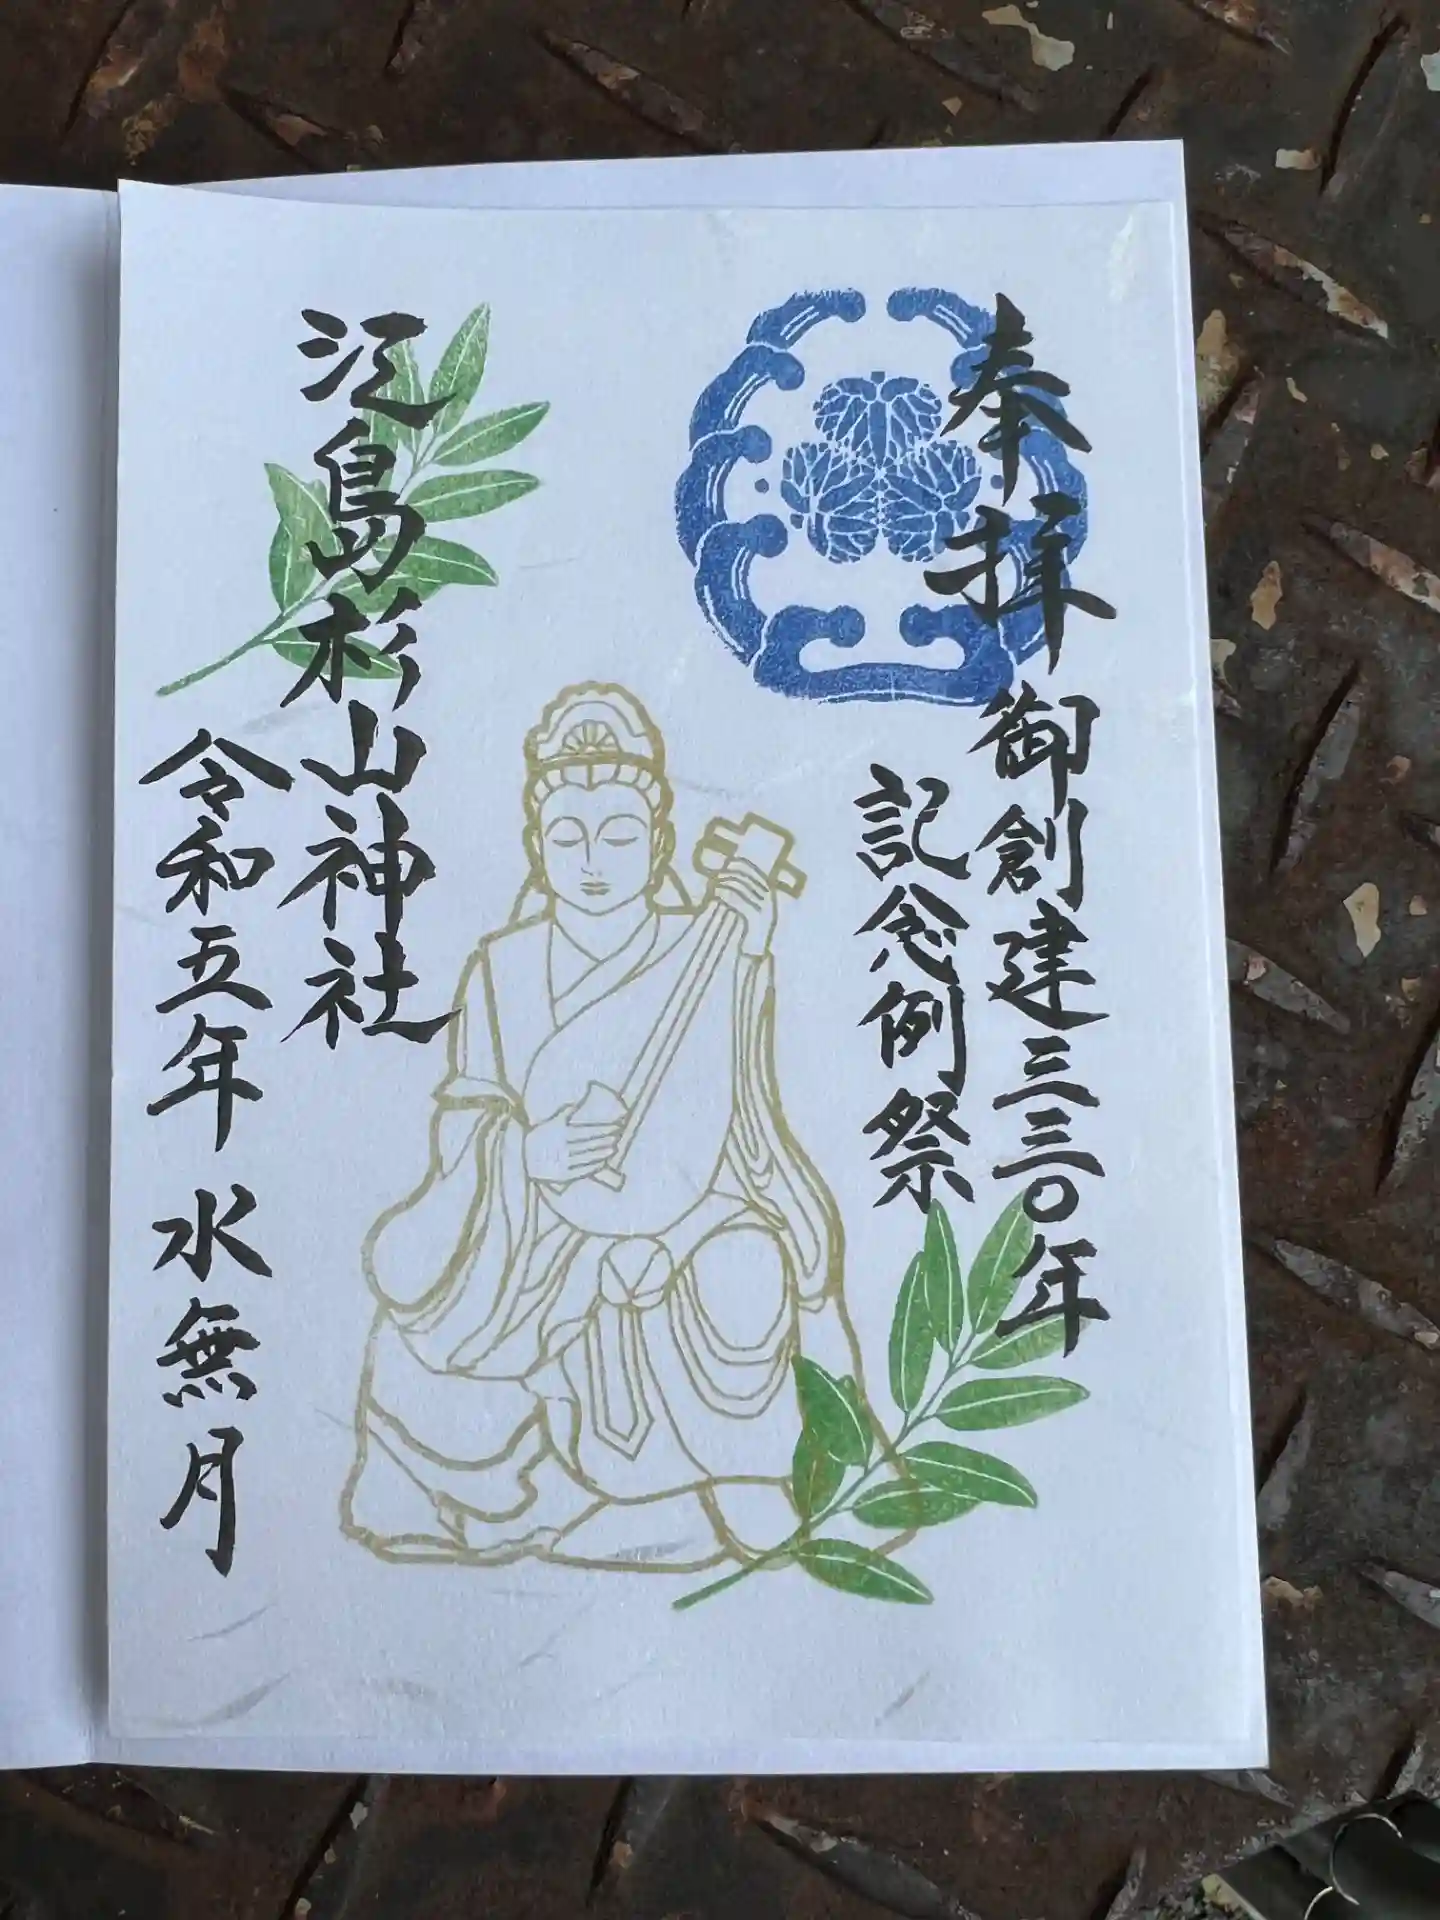 奉拝
御創建三三〇年
記念例祭
江島杉山神社
令和五年 水無月